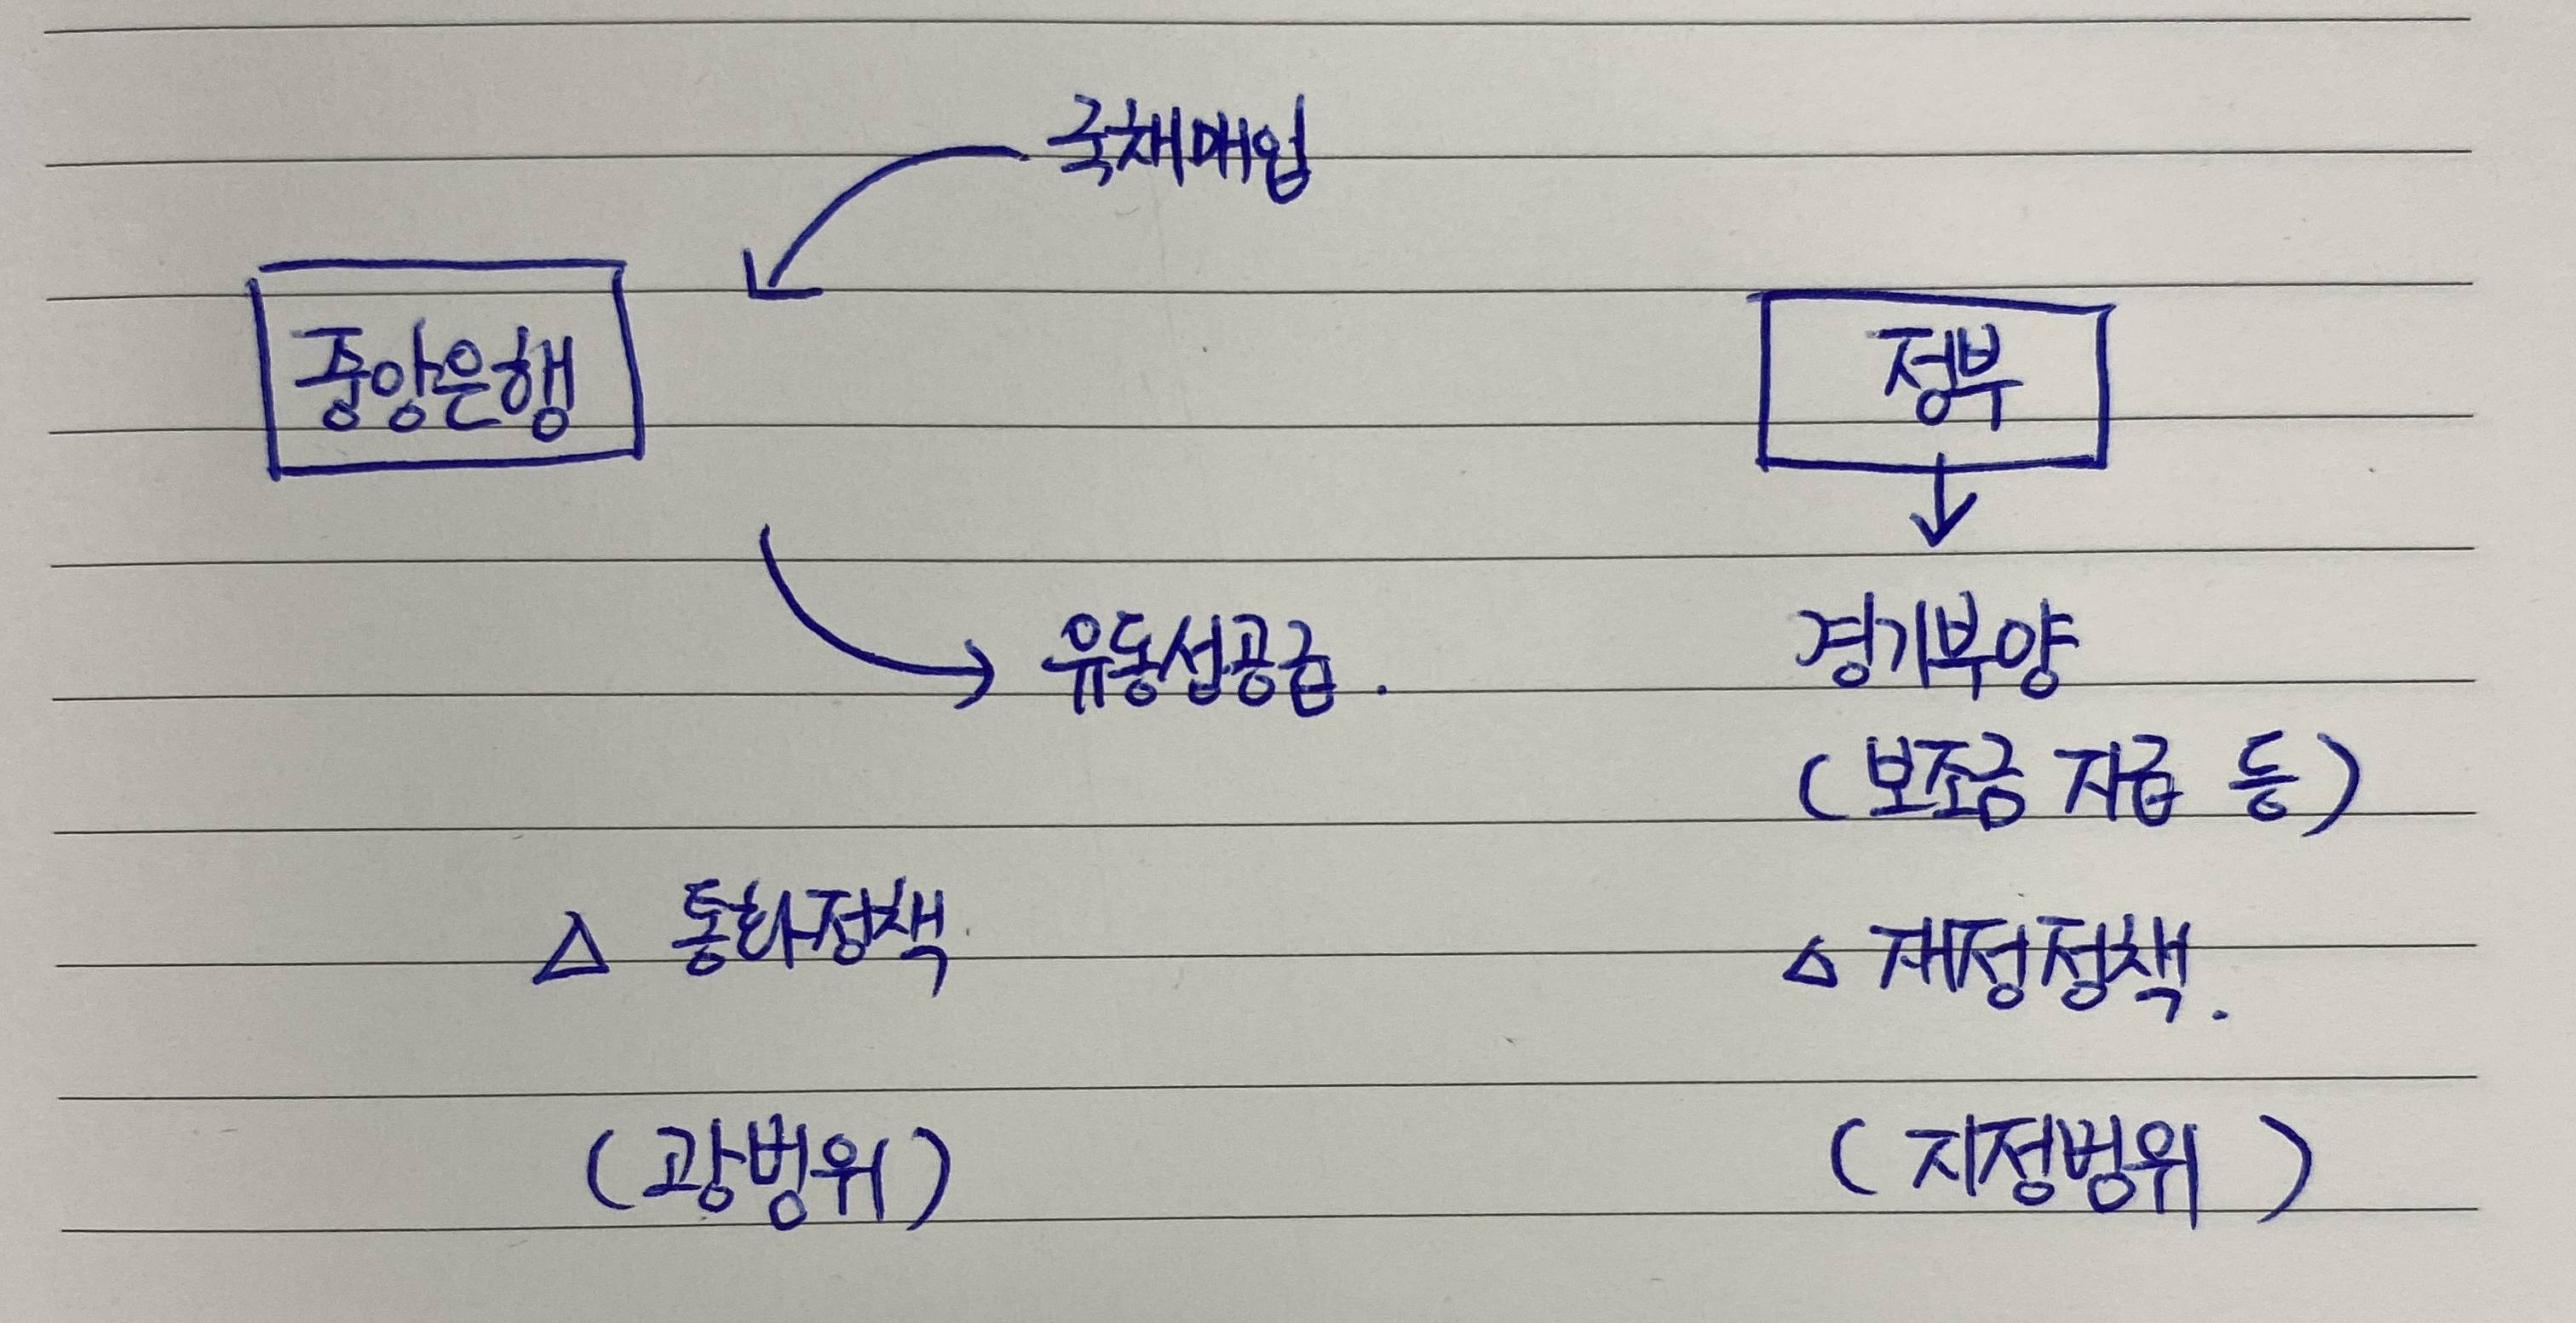 국채매입
중앙은행
정부
유동성공급.
경기부양
(보조금 지급 등)
△ 통화정책
△ 재정정책.
(광벙위)
(지정벙위)